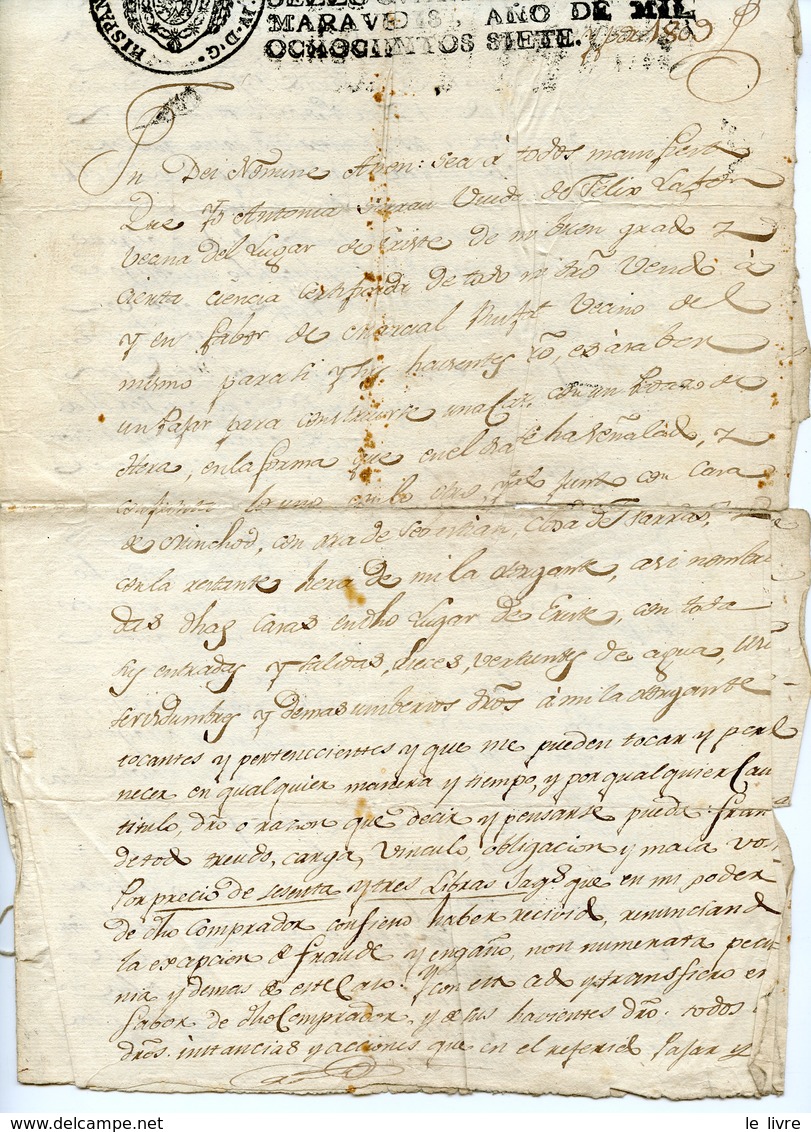 HISPAN
D. G.
MARAVEDIS, AÑO DE MIL
OCHOCIENTOS SIETE.
1809
In Dei Nomine Amen: sea á todos manifiesto
Que Yo Antonia Viuda de Felix
Vecina del Lugar de Eriste de mi buen grado y
cierta ciencia certificada de todo mi dró Vendo á
y en fabor de Marcial Vecino del
mismo para ti y tus havientes dró, es á saber
un Pajar para construirte una Casa con un Pedazo de
Hera, en la forma que en el dia te ha señalado, y
confronta lo uno con lo otro, y el junto con Casa
de Minchod, con era de Sebastian, Casa de y
con la restante hera de mi la otorgante, asi nombra
das dhas Casas en dho Lugar de Eriste, con todas
sus entradas y salidas, luces, vertientes de agua,
servidumbres y demas unibersos drós á mi la otorgante
tocantes y pertenecientes y que me pueden tocar y perte
necer en qualquier manera y tiempo y por qualquier Cau
titulo, dró o razon que decir y pensarse pueda: fran
de todo treudo, carga, vinculo, obligacion y mala vo
Por precio de sesenta y tres Libras Jags que en mi poder
de dho Comprador confieso haber recivido, renunciando
la excepcion de fraude y engaño, non numerata pecu
nia y demas de este Caso. Y con esto cedo y transfiero en
fabor de dho Comprador, y de sus havientes dró. todos
drós. instancias y acciones que en el referido Pajar y
le livre